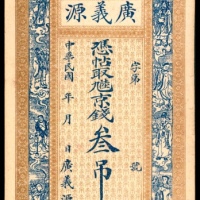 源義廣
字第　號
憑帖取𠫵京錢叁吊
中華民國　年　月　日廣義源